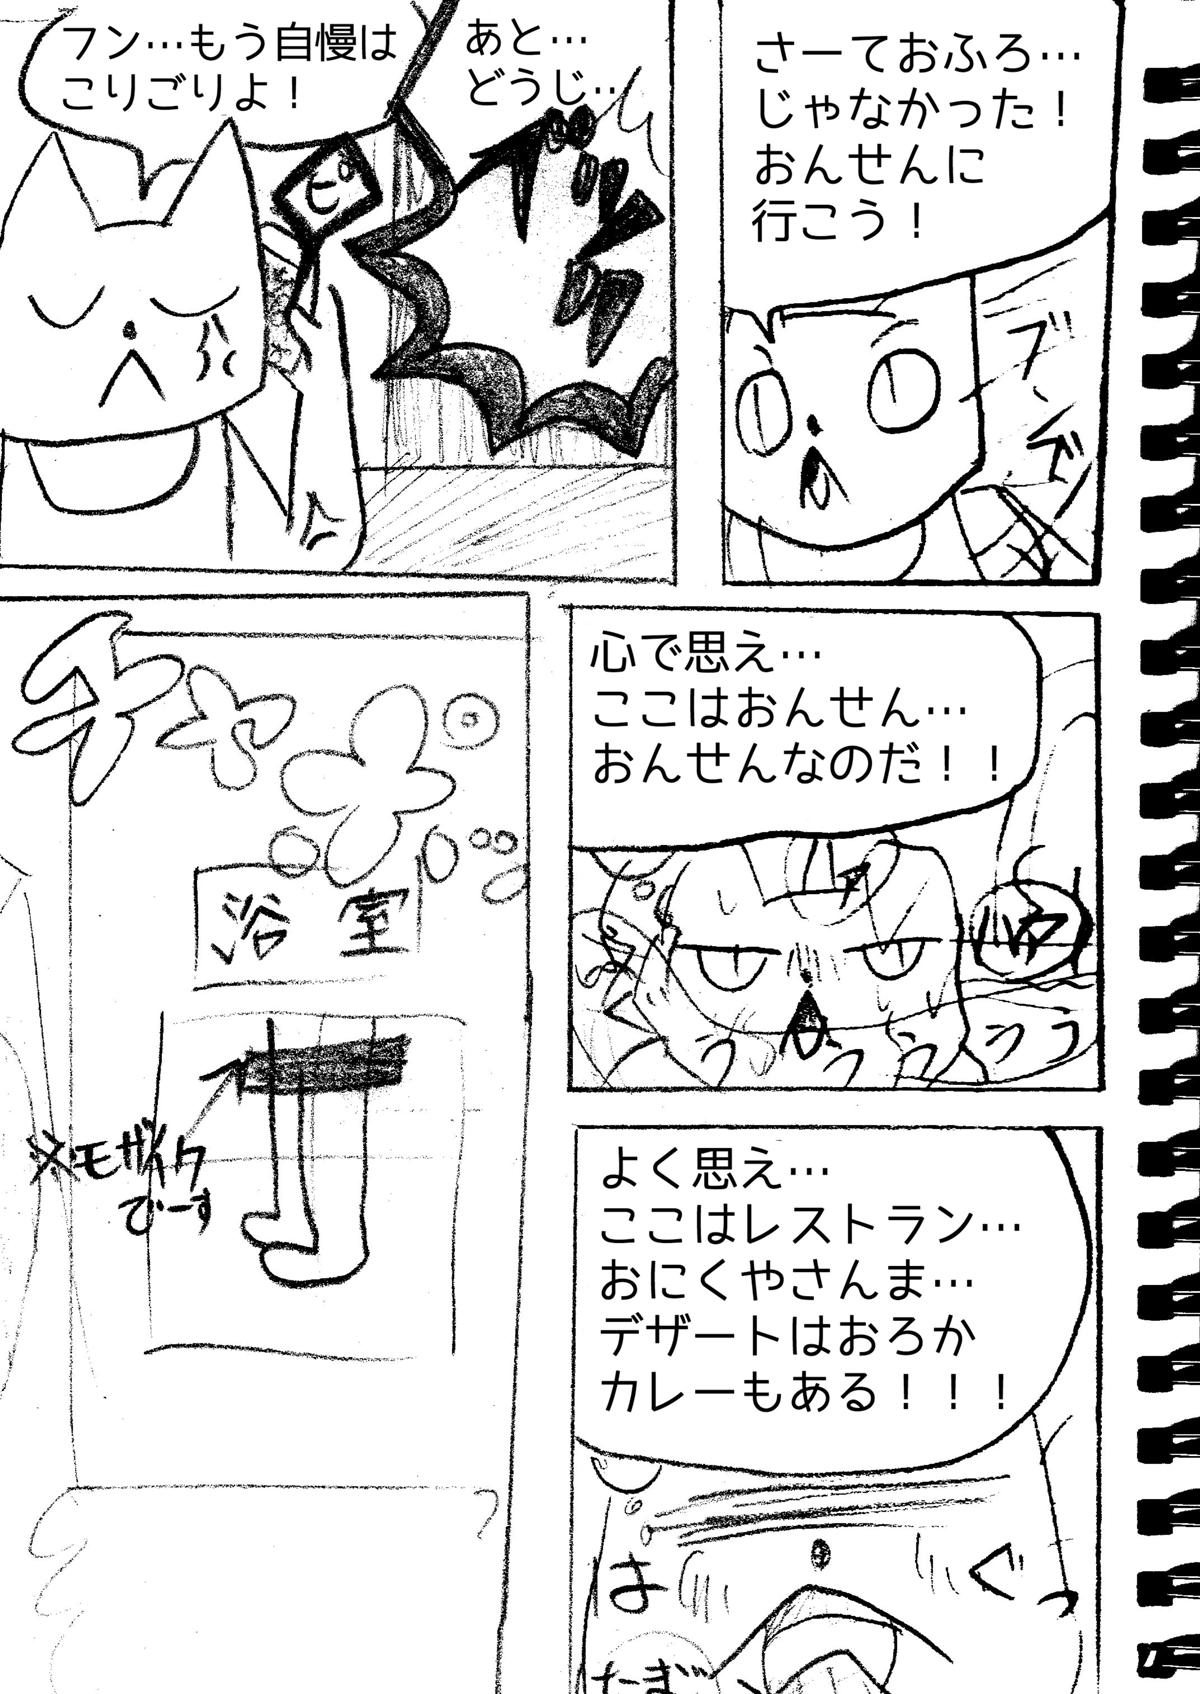 さーておふろ…
じゃなかった！
おんせんに
行こう！
あと…
どうじ…
フン…もう自慢は
こりごりよ！
ピ
心で思え…
ここはおんせん…
おんせんなのだ！！
ハァ
うううううう
チャ
浴室
※モザイク
でーす
よく思え…
ここはレストラン…
おにくやさんま…
デザートはおろか
カレーもある！！！
はぐっ